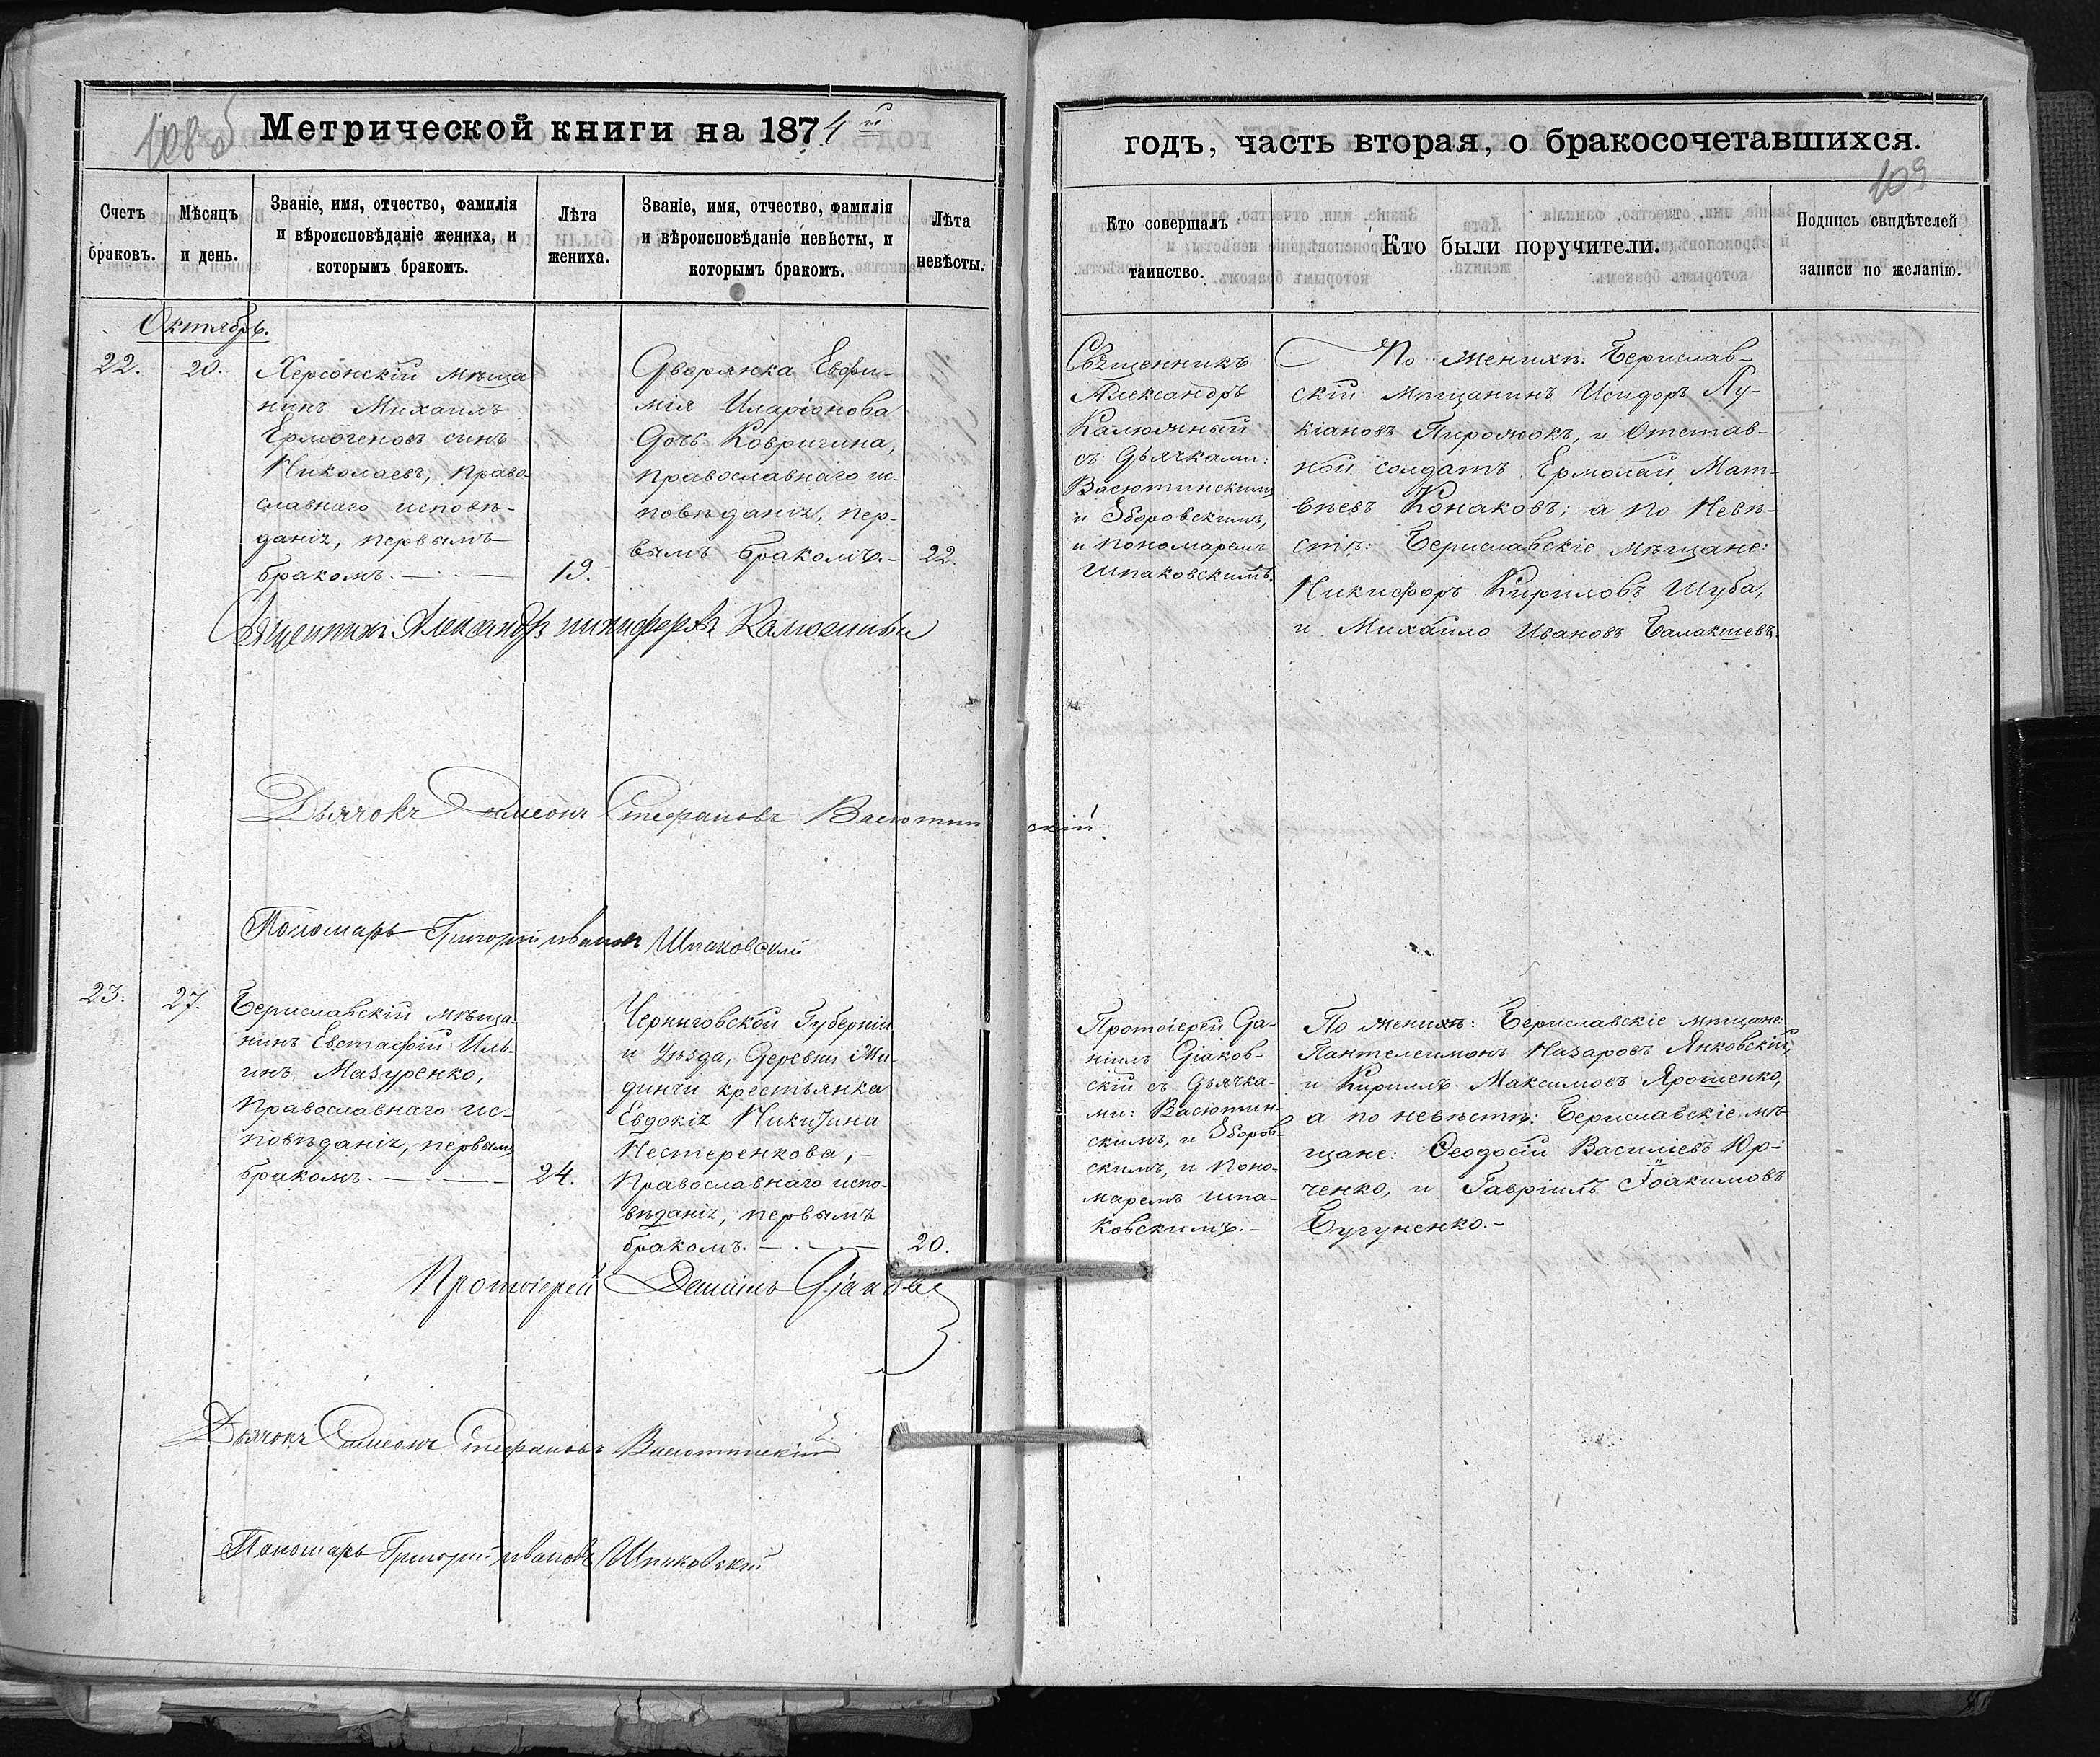 108 об
Метрической книги на 1874й
Счетъ браковъ.
Мѣсяцъ и день.
Званіе, имя, отчество, фамилія
и вѣроисповѣданіе жениха, и
которымъ бракомъ.
Лѣта
жениха.
Званіе, имя, отчество, фамилія
и вѣроисповѣданіе невѣсты, и
которымъ бракомъ.
Лѣта
невѣсты.
Октябрь.
22.
20.
Херсонскій мѣща
нинъ Михаилъ
Ермогеновъ сынъ
Николаевъ, право
славнаго исповѣ-
данія, первымъ
бракомъ.
19.
Дворянка Евфи-
мія Иларіонова
дочь Ковригина,
православнаго ис-
повѣданія, пер-
вымъ бракомъ.-
22.
Священникъ Александръ Никифоровъ Калюжный
Дьячокъ Симеонъ Стефановъ Васютинскій.
Пономарь Григорій Ивановъ Шпаковскій
23.
27.
Бериславскій мѣща-
нинъ Евстафій Иль-
инъ Мазуренко,
православнаго ис-
повѣданія, первымъ
бракомъ.
24.
Черниговской Губерніи
и Уѣзда, деревни Ми-
динчи крестьянка
Евдокія Никитина
Нестеренкова,-
православнаго испо-
вѣданія, первымъ
бракомъ.
20.
Протоіерей Даніилъ Діаков
Дьячокъ Симеонъ Стефановъ Васютинскій
Пономарь Григорій Ивановъ Шпаковскій
годъ, часть вторая, о бракосочетавшихся.
109
Кто совершалъ
таинство.
Кто были поручители.
Подпись свидѣтелей
записи по желанію.
Священникъ
Александръ
Калюжный
съ дьячками:
Васютинскимъ
и Зборовскимъ,
и пономаремъ
Шпаковскимъ.
По женихѣ: Берислав-
скій мѣщанинъ Исидоръ Лу-
кіановъ Пирожокъ, и отстав-
ной солдатъ Ермолай Мат-
вѣевъ Конаковъ; а по невѣ-
стѣ: Бериславскіе мѣщане:
Никифоръ Кириловъ Шуба,
и Михайло Ивановъ Балакшевъ.
Протоіерей Да-
ніилъ Діаков-
скій съ дьячка-
ми: Васютин-
скимъ, и Зборов-
скимъ, и поно-
маремъ Шпа-
ковскимъ.-
По женихѣ: Бериславскіе мѣщане:
Пантелеимонъ Назаровъ Янковскій,
и Кириллъ Максимовъ Ярошенко,
а по невѣстѣ: Бериславскіе мѣ-
щане: Ѳеодосій Василіевъ Юр-
ченко, и Гавріилъ Іоакимовъ
Бугуненко.-